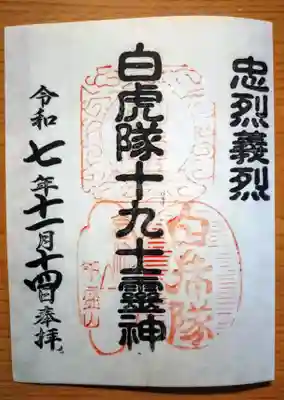 忠烈義烈
白虎隊十九士靈神
令和七年十一月十四日奉拝
白虎隊